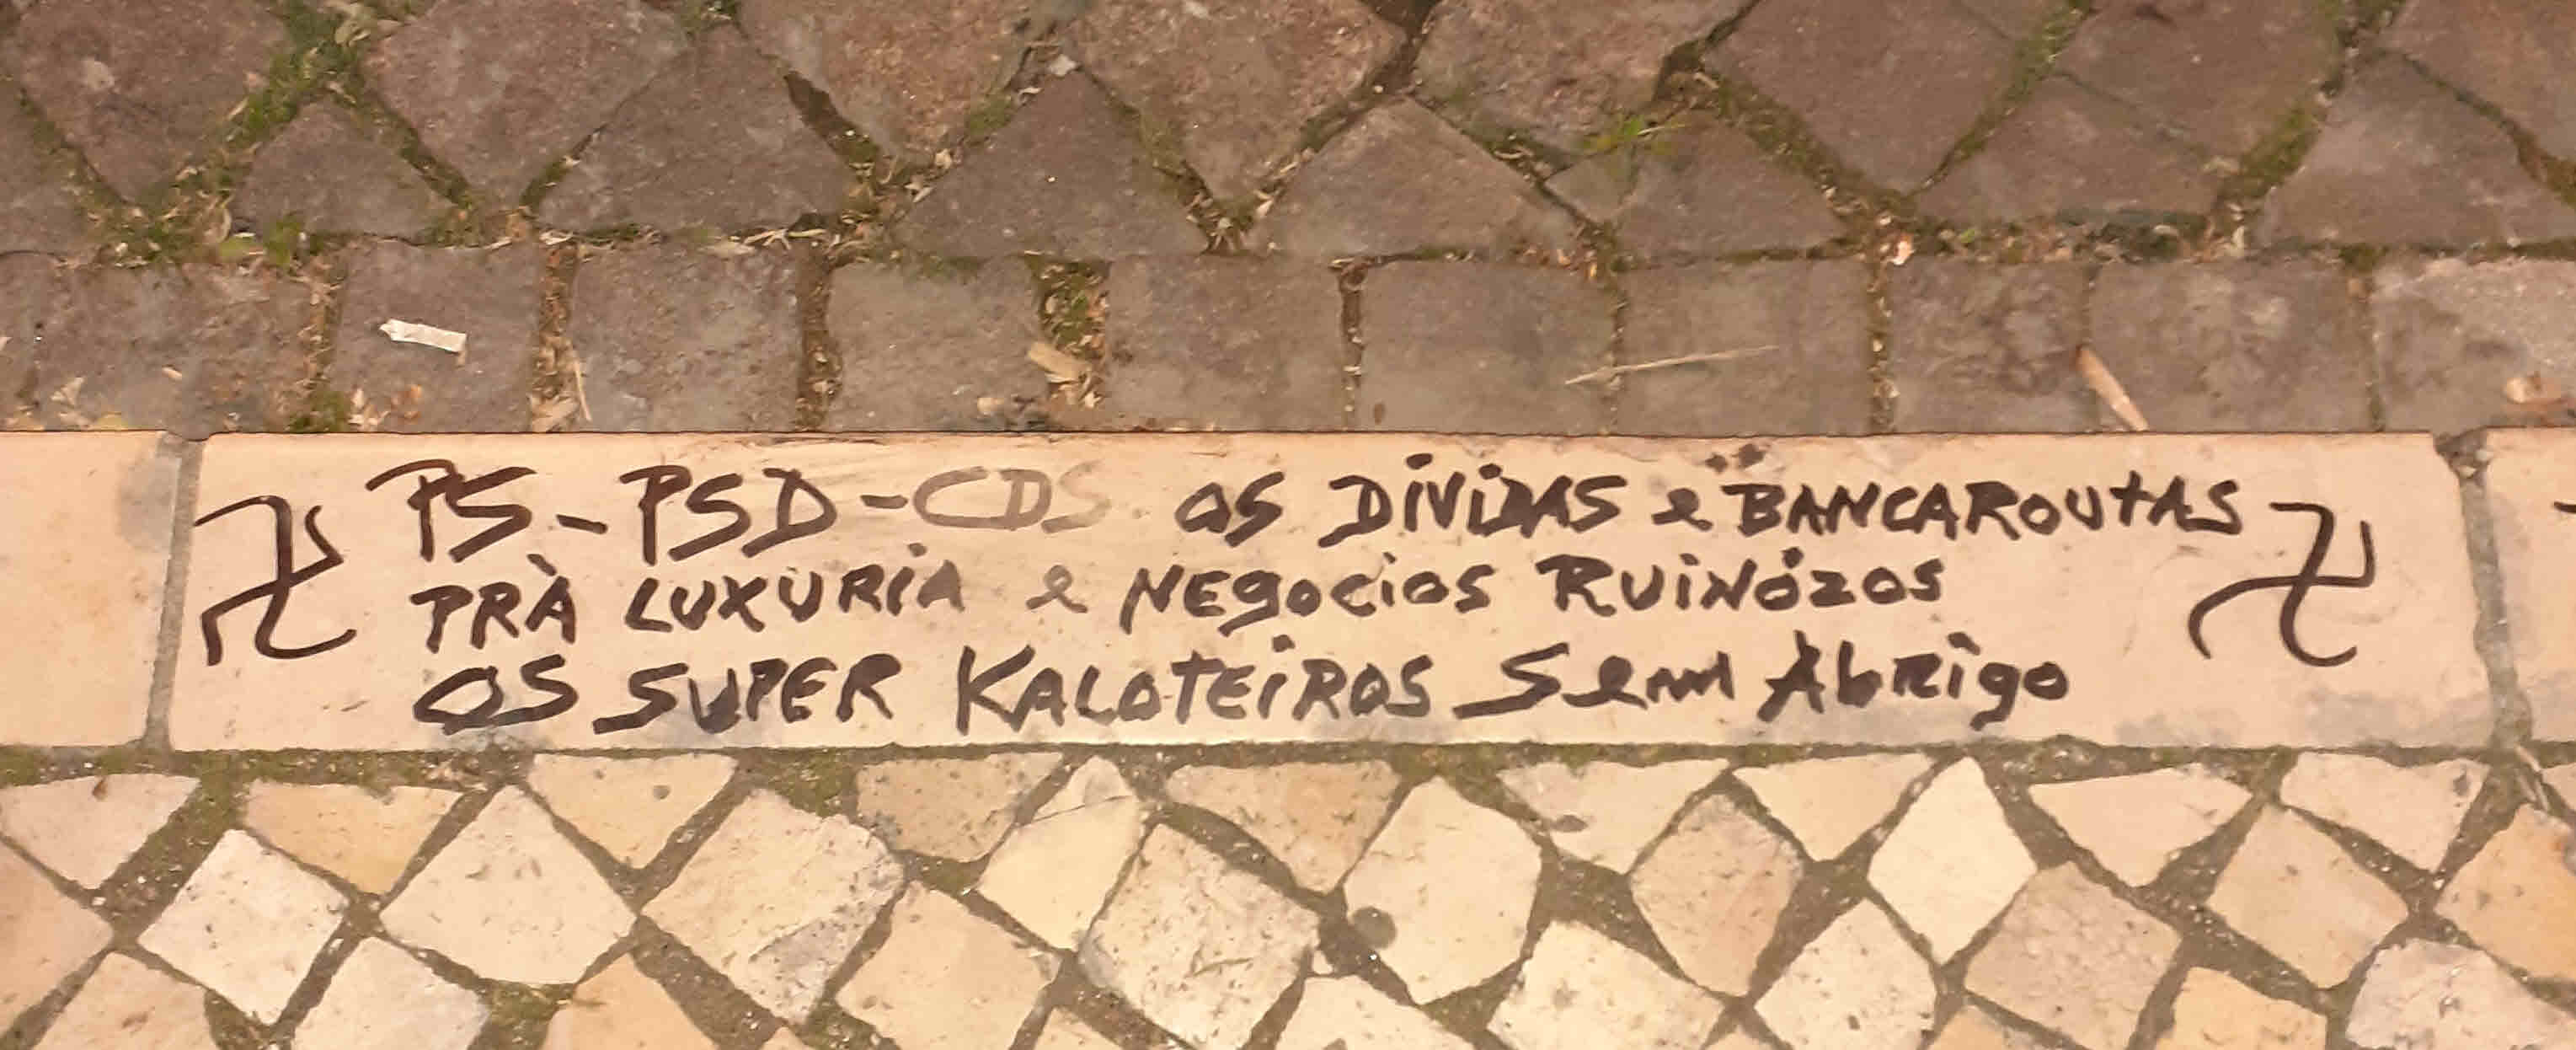 PS-PSD-CDS OS DÍVIDAS e BANCAROUTAS
PRÀ LUXURIA e NEgocios RUINÓZOS
OS SUPER KALOTEIROS Sem Abrigo